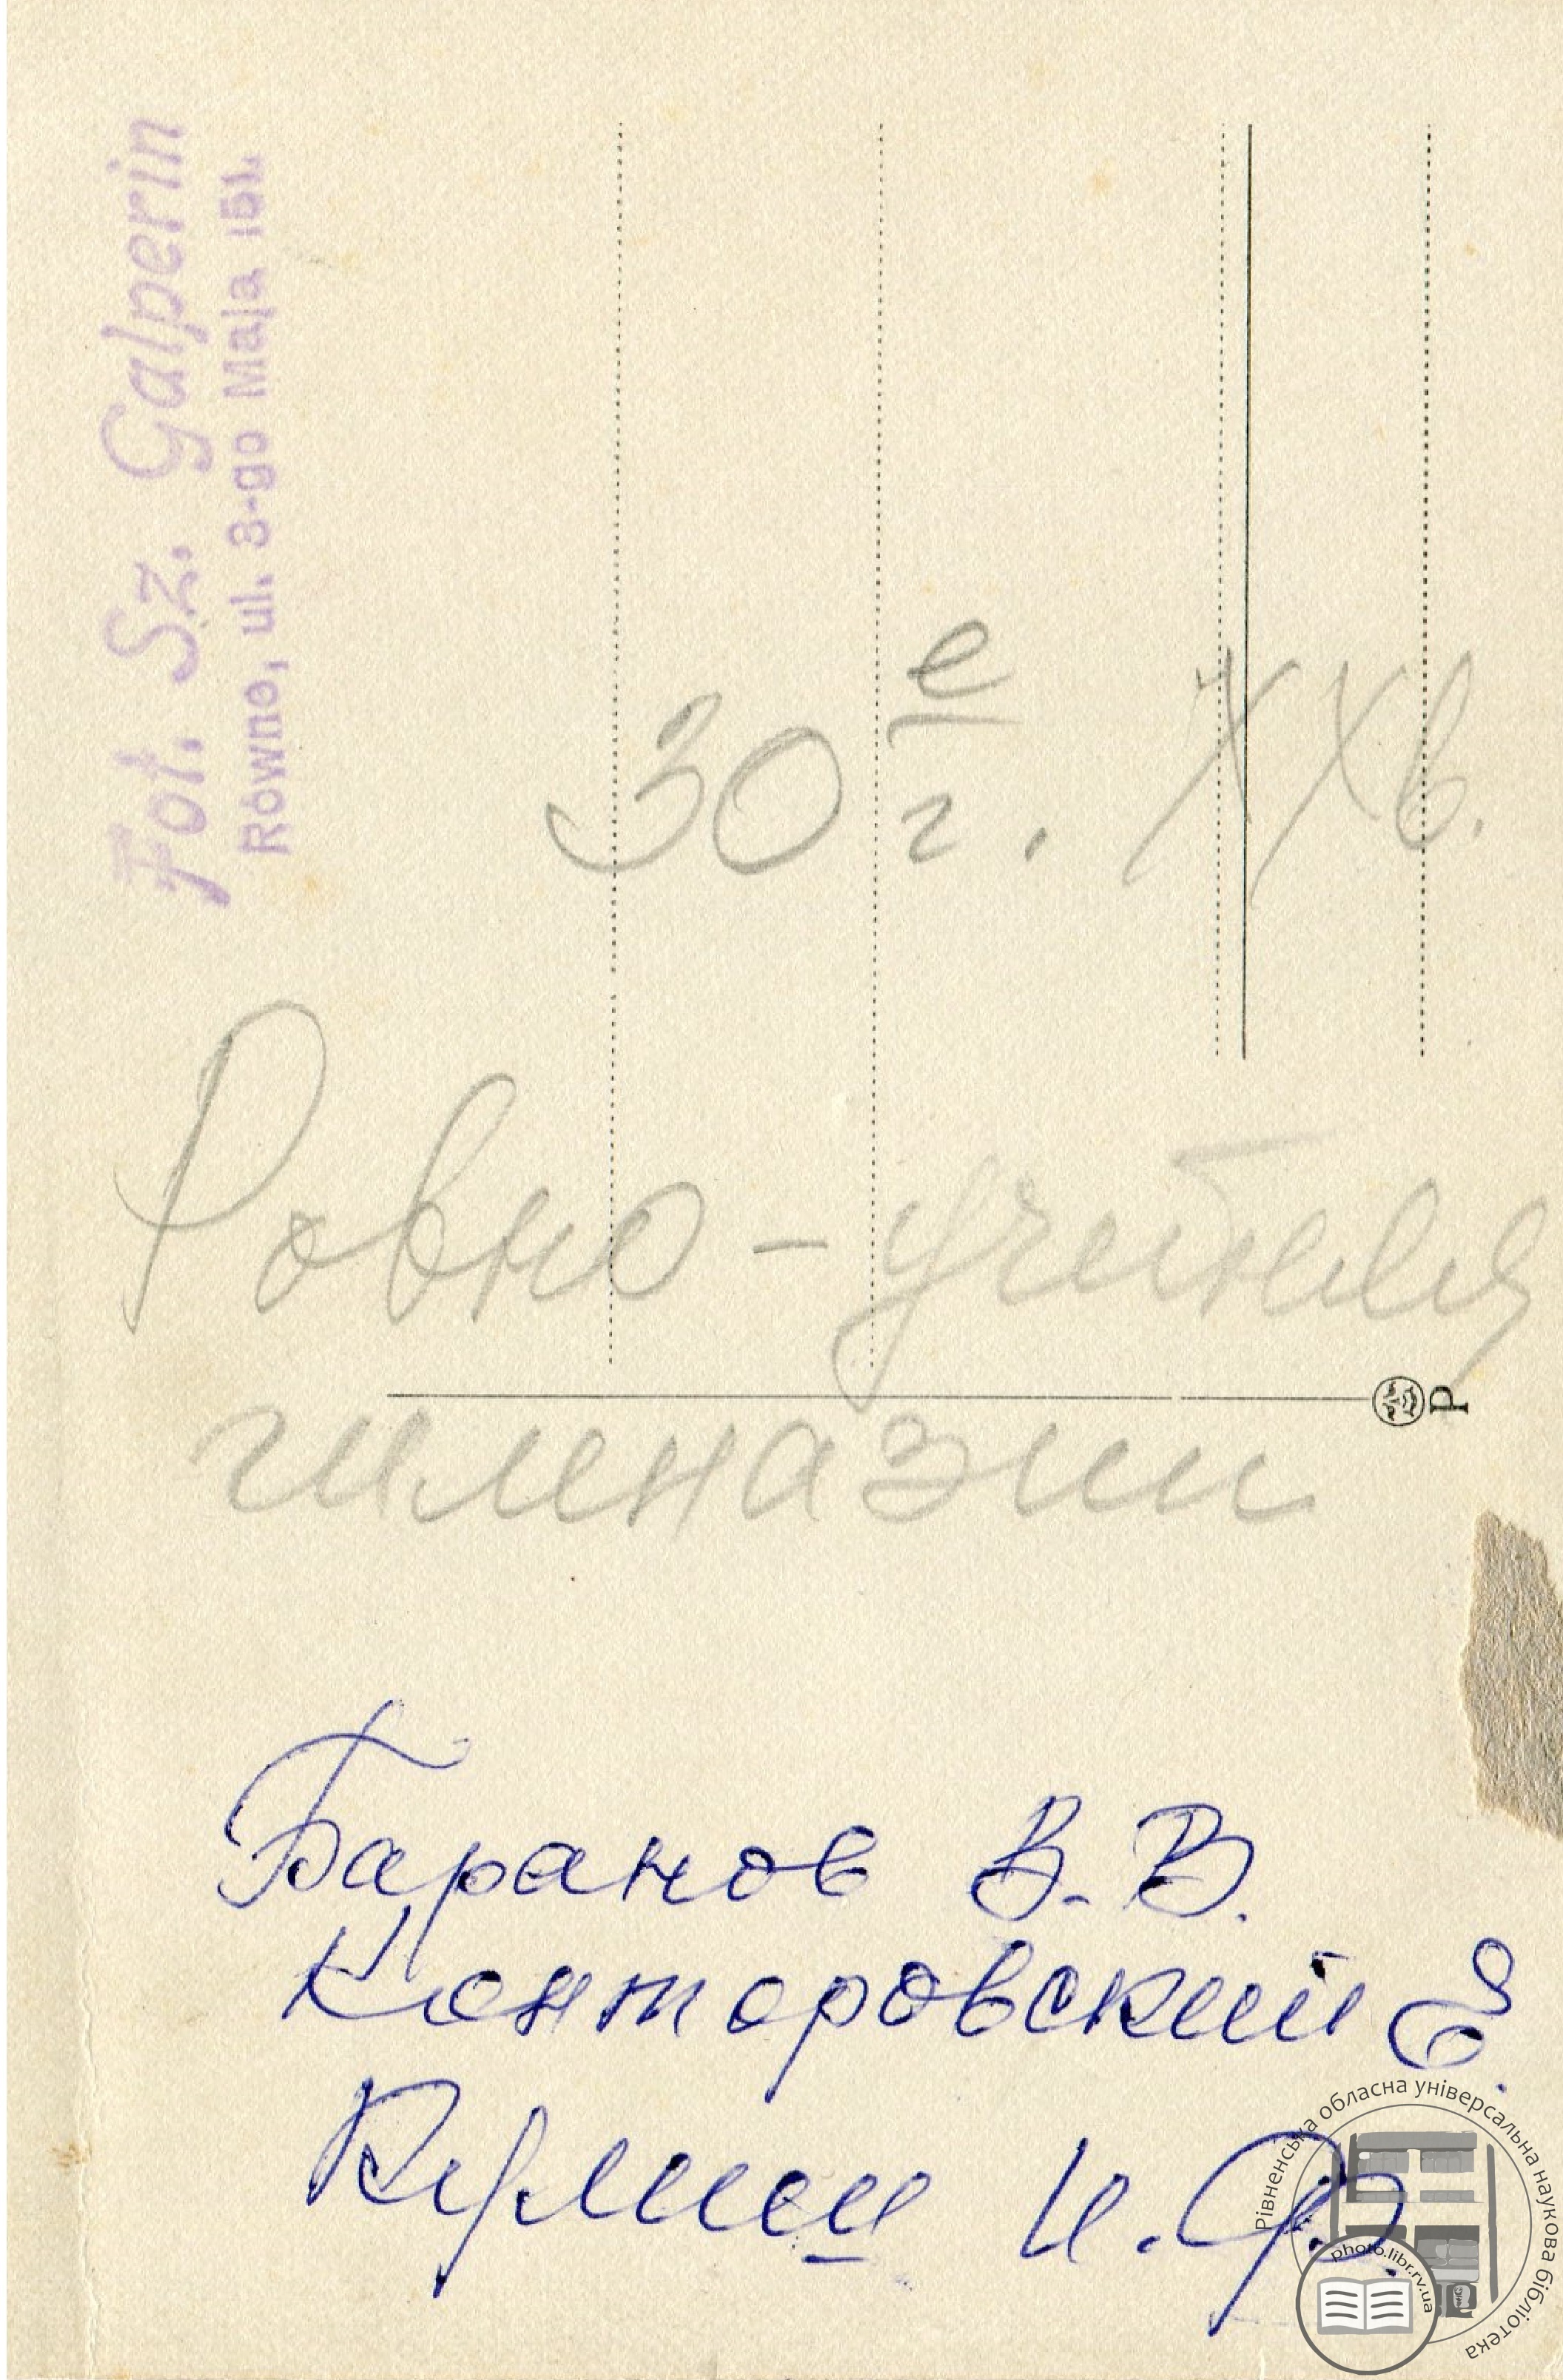 Fot. Sz. Galperin
Równe, ul. 3-go Maja 151.
30 е/г. ХХв.
Ровно - учителя
гимназии
P
Баранов В.В.
Конторовский Е.
И. Ф.
Рівненська обласна універсальна наукова бібліотека
photo.libr.rv.ua